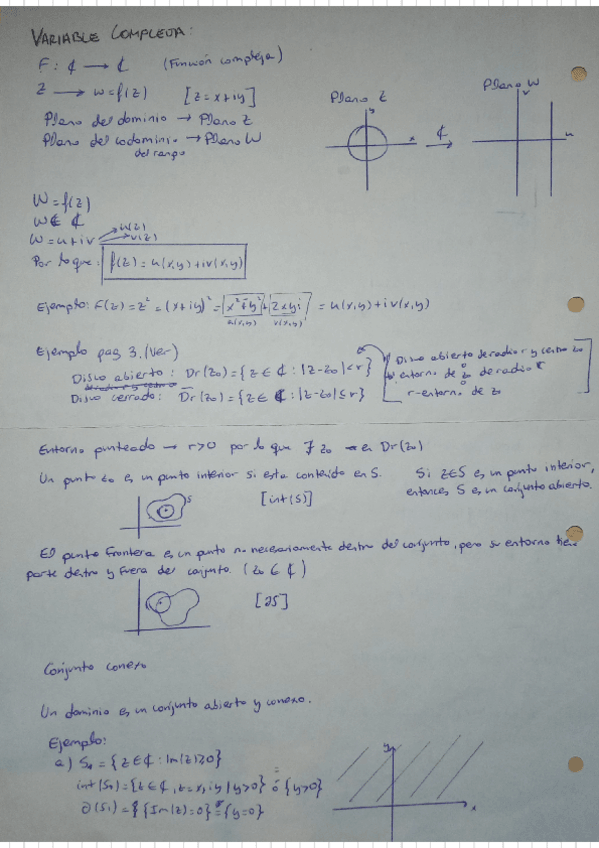 VARIABLE COMPLEJA:
F: ₵ → ₵ (Función compleja)
Z → w=f(z) [z=x+iy]
Plano del dominio → Plano Z
Plano del codominio → Plano W
del rango
Plano Z
y
x
₵
Plano W
v
u
W=f(z)
W∈ ₵
W=u+iv
u(z)
v(z)
Por lo que: f(z)=u(x,y)+iv(x,y)
Ejemplo: F(z)=z²=(x+iy)²=x²+y²+2xyi = u(x,y)+iv(x,y)
u(x,y) v(x,y)
Ejemplo pag 3.(Ver)
Disco abierto: Dr(z₀)={z∈ ₵: |z-z₀|<r}
Disco cerrado: D̄r(z₀)={z∈ ₵: |z-z₀|≤r}
Disco abierto de radio r y centro z₀
ó
entorno de z₀ de radio r
ó
r-entorno de z₀
Entorno punteado → r>0 por lo que z₀ en Dr(z₀)
Un punto z₀ es un punto interior si esta contenido en S.
[int(S)]
Si z∈S es un punto interior,
entonces S es un conjunto abierto.
S
El punto frontera es un punto no necesariamente dentro del conjunto, pero su entorno tiene
parte dentro y fuera del conjunto. (z₀ ∈ ₵)
[∂S]
Conjunto conexo
Un dominio es un conjunto abierto y conexo.
Ejemplo:
a) S₁={z∈₵: Im(z)≥0}
int(S₁)={z∈₵, z=x+iy | y>0} ó {y>0}
∂(S₁)={Im(z)=0}={y=0}
y
x